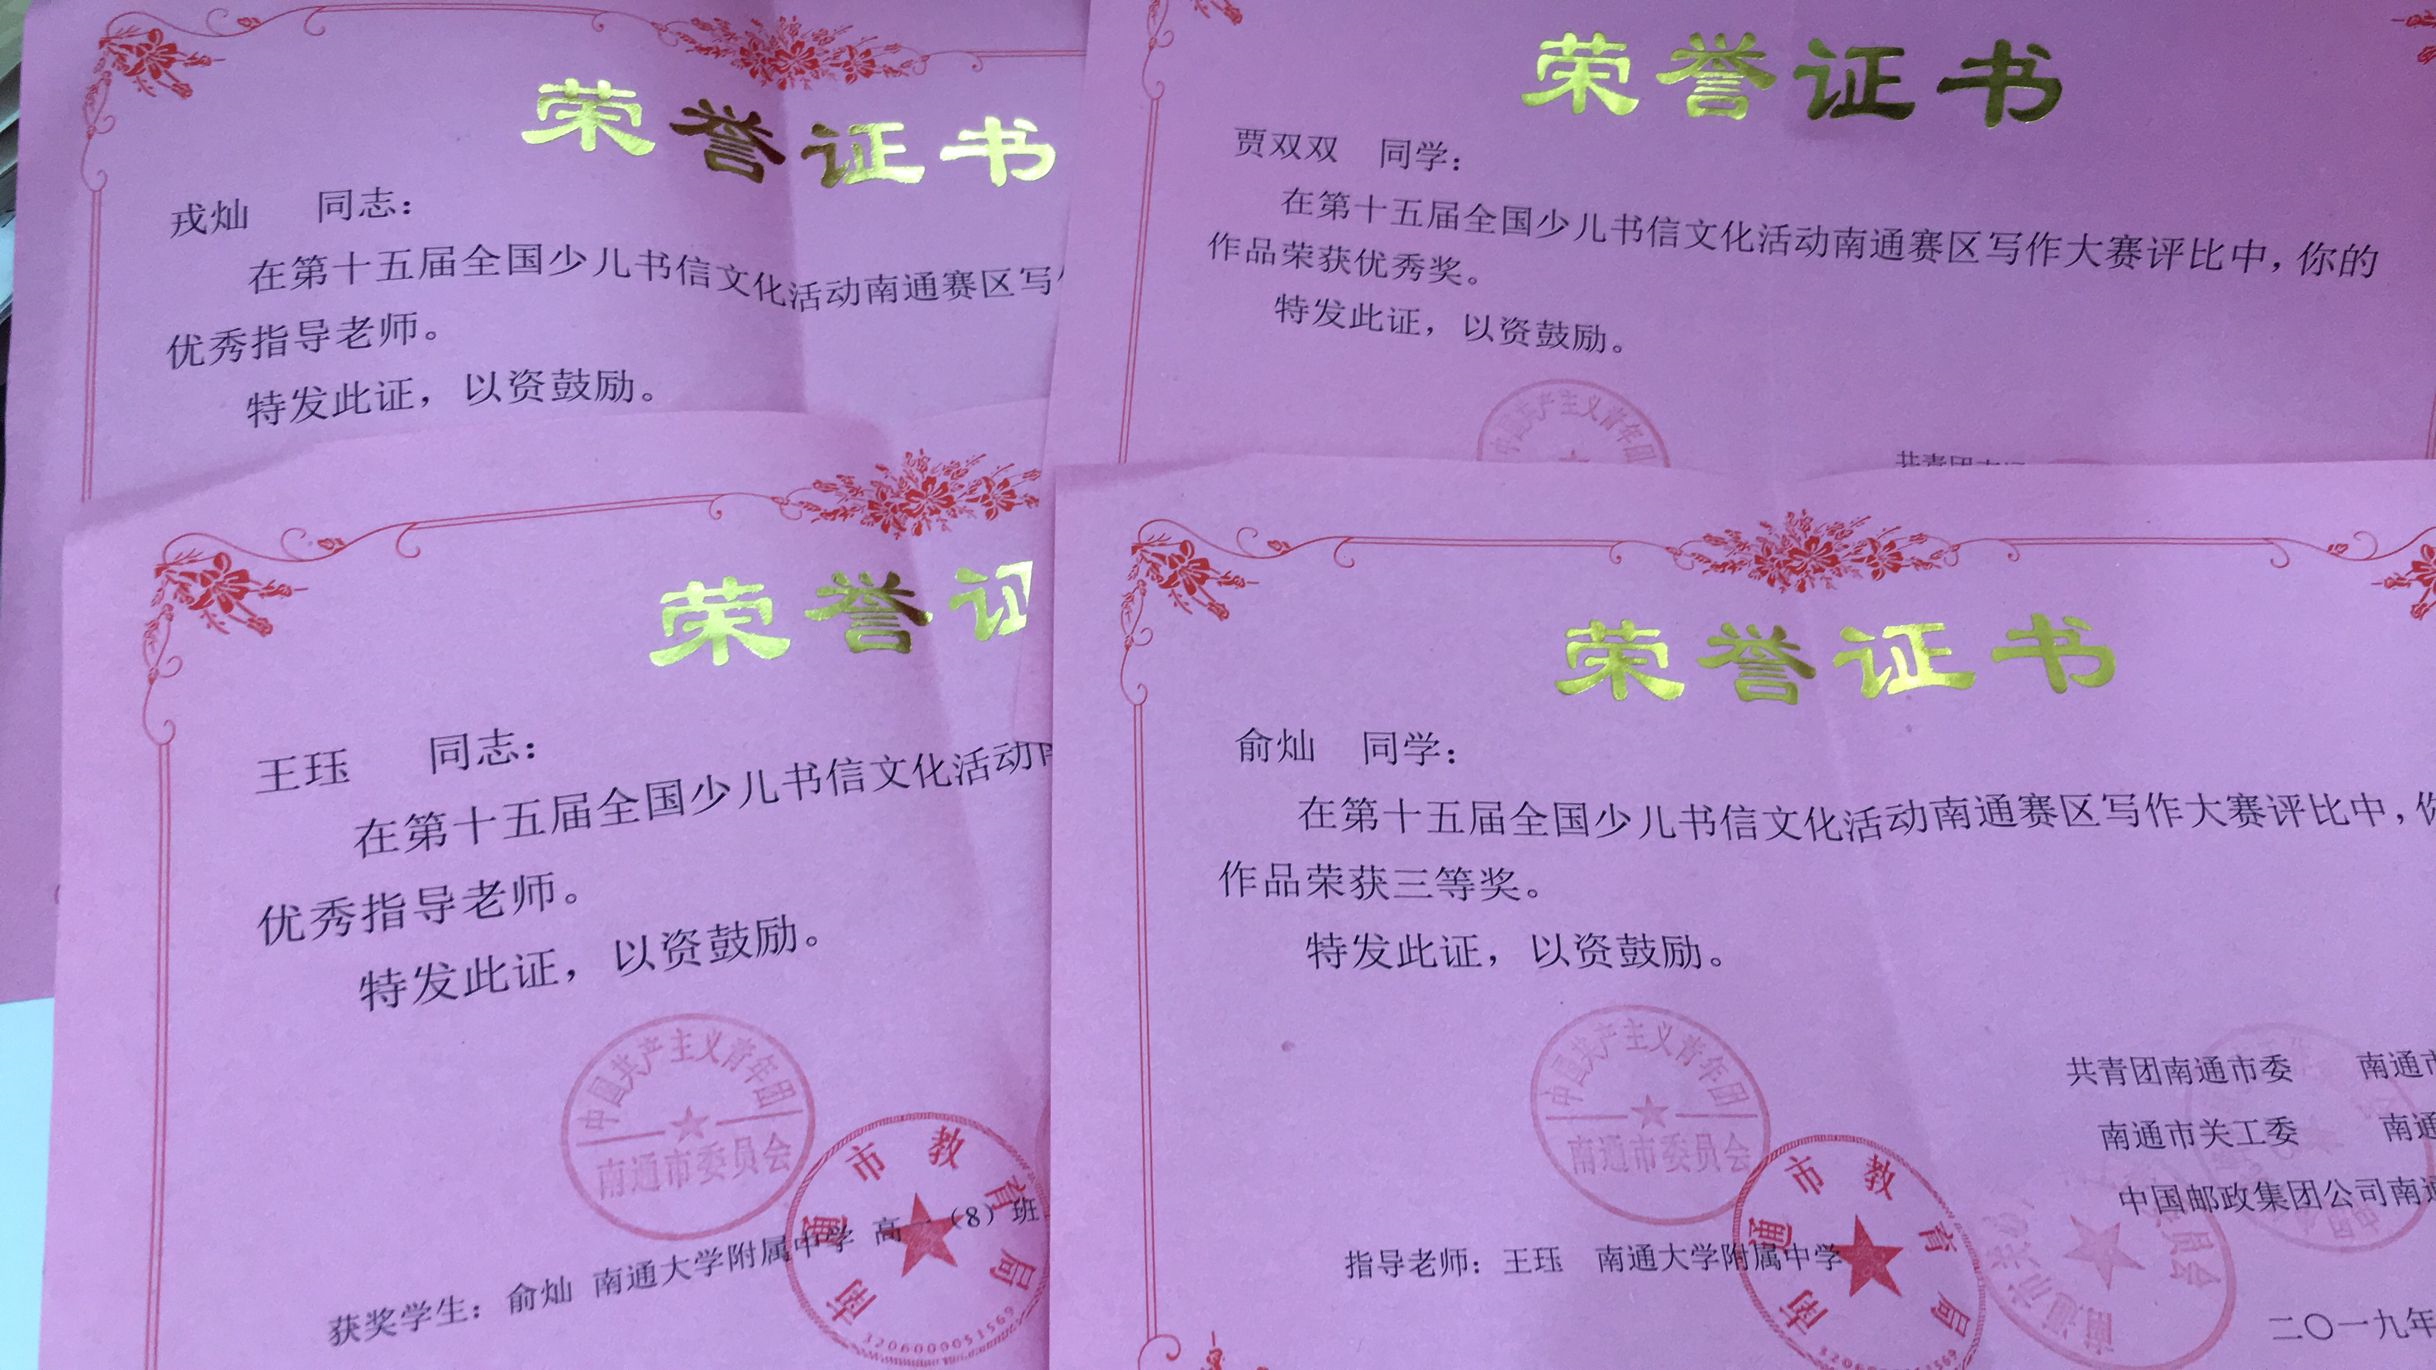 荣誉证书
戎灿 同志：
在第十五届全国少儿书信文化活动南通赛区写
优秀指导老师。
特发此证，以资鼓励。
荣誉证书
贾双双 同学：
在第十五届全国少儿书信文化活动南通赛区写作大赛评比中，你的
作品荣获优秀奖。
特发此证，以资鼓励。
中国共产主义青年团
共青团南通
荣誉证
王珏 同志：
在第十五届全国少儿书信文化活动
优秀指导老师。
特发此证，以资鼓励。
中国共产主义青年团
南通市委员会
南通市教育局
3206000051569
获奖学生：俞灿 南通大学附属中学 高一（8）班
荣誉证书
俞灿 同学：
在第十五届全国少儿书信文化活动南通赛区写作大赛评比中，你
作品荣获三等奖。
特发此证，以资鼓励。
中国共产主义青年团
南通市委员会
共青团南通市委 南通市
南通市关工委 南通
中国邮政集团公司南通
南通市教育局
指导老师：王珏 南通大学附属中学
二〇一九年